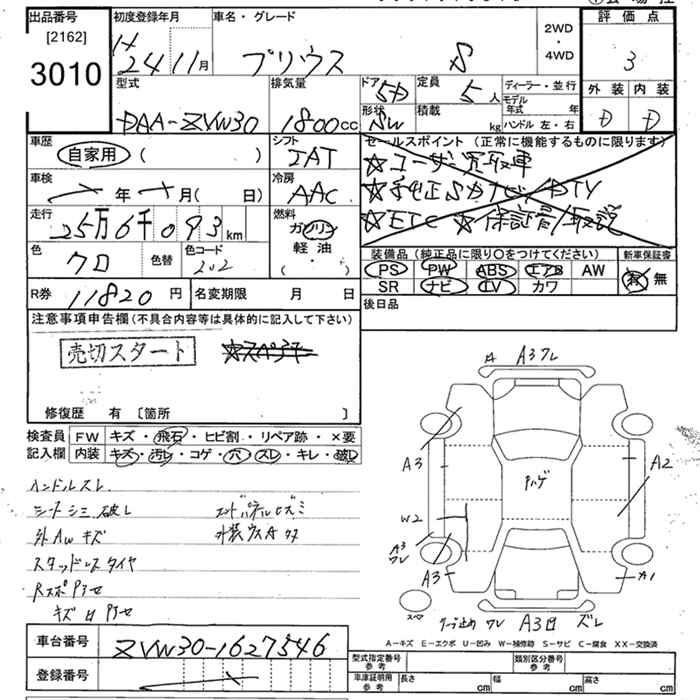 出品番号
[2162]
3010
初度登録年月
H
24 11月
車名・グレード
プリウス S
2WD
・
4WD
評価点
3
外装 内装
D D
型式
DAA-ZVW30
排気量
1800cc
ドア 形状
5D SW
定員
5人
積載
kg
ディーラー・並行
モデル年式 年
ハンドル 左・右
車歴
自家用 ( )
シフト
IAT
車検
年 月( 日)
冷房
AAC
走行
25万6千093km
燃料
ガソリン
軽油
( ・ )
色
クロ
色替
色コード
202
R券 11820円
名変期限 月 日
セールスポイント(正常に機能するものに限ります)
☆ユーザー買取車
☆純正SDナビ/DTV
☆ETC ☆保証書/取説
装備品(純正品に限り○をつけてください)
新車保証書
PS PW ABS エアB AW
SR ナビ TV カワ
有 無
後日品
注意事項申告欄(不具合内容等は具体的に記入して下さい)
売切スタート
修復歴 有 [箇所 ]
検査員記入欄
FW キズ・飛石・ヒビ割・リペア跡・×要
内装 キズ・汚レ・コゲ・穴・スレ・キレ・破レ
ハンドルスレ
シートシミ 破レ
外AWキズ
スタッドレスタイヤ
エンドパネルヒズミ
外装ウスAクチ
A3ワレ
A3
W2
A3
ワレ
A3
ハゲ
A2
A1
A3凹 ズレ
A-キズ E-エクボ U-凹み W-補修跡 S-サビ C-腐食 XX-交換済
車台番号
ZVW30-1627546
登録番号
型式指定番号
参考
類別区分番号
参考
車庫証明用
参考
長さ cm
幅 cm
高さ cm